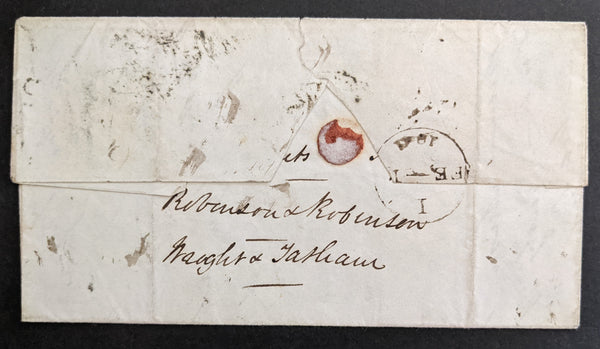 Robinson & Robinson
Waught & Tatham
FE - 1
1